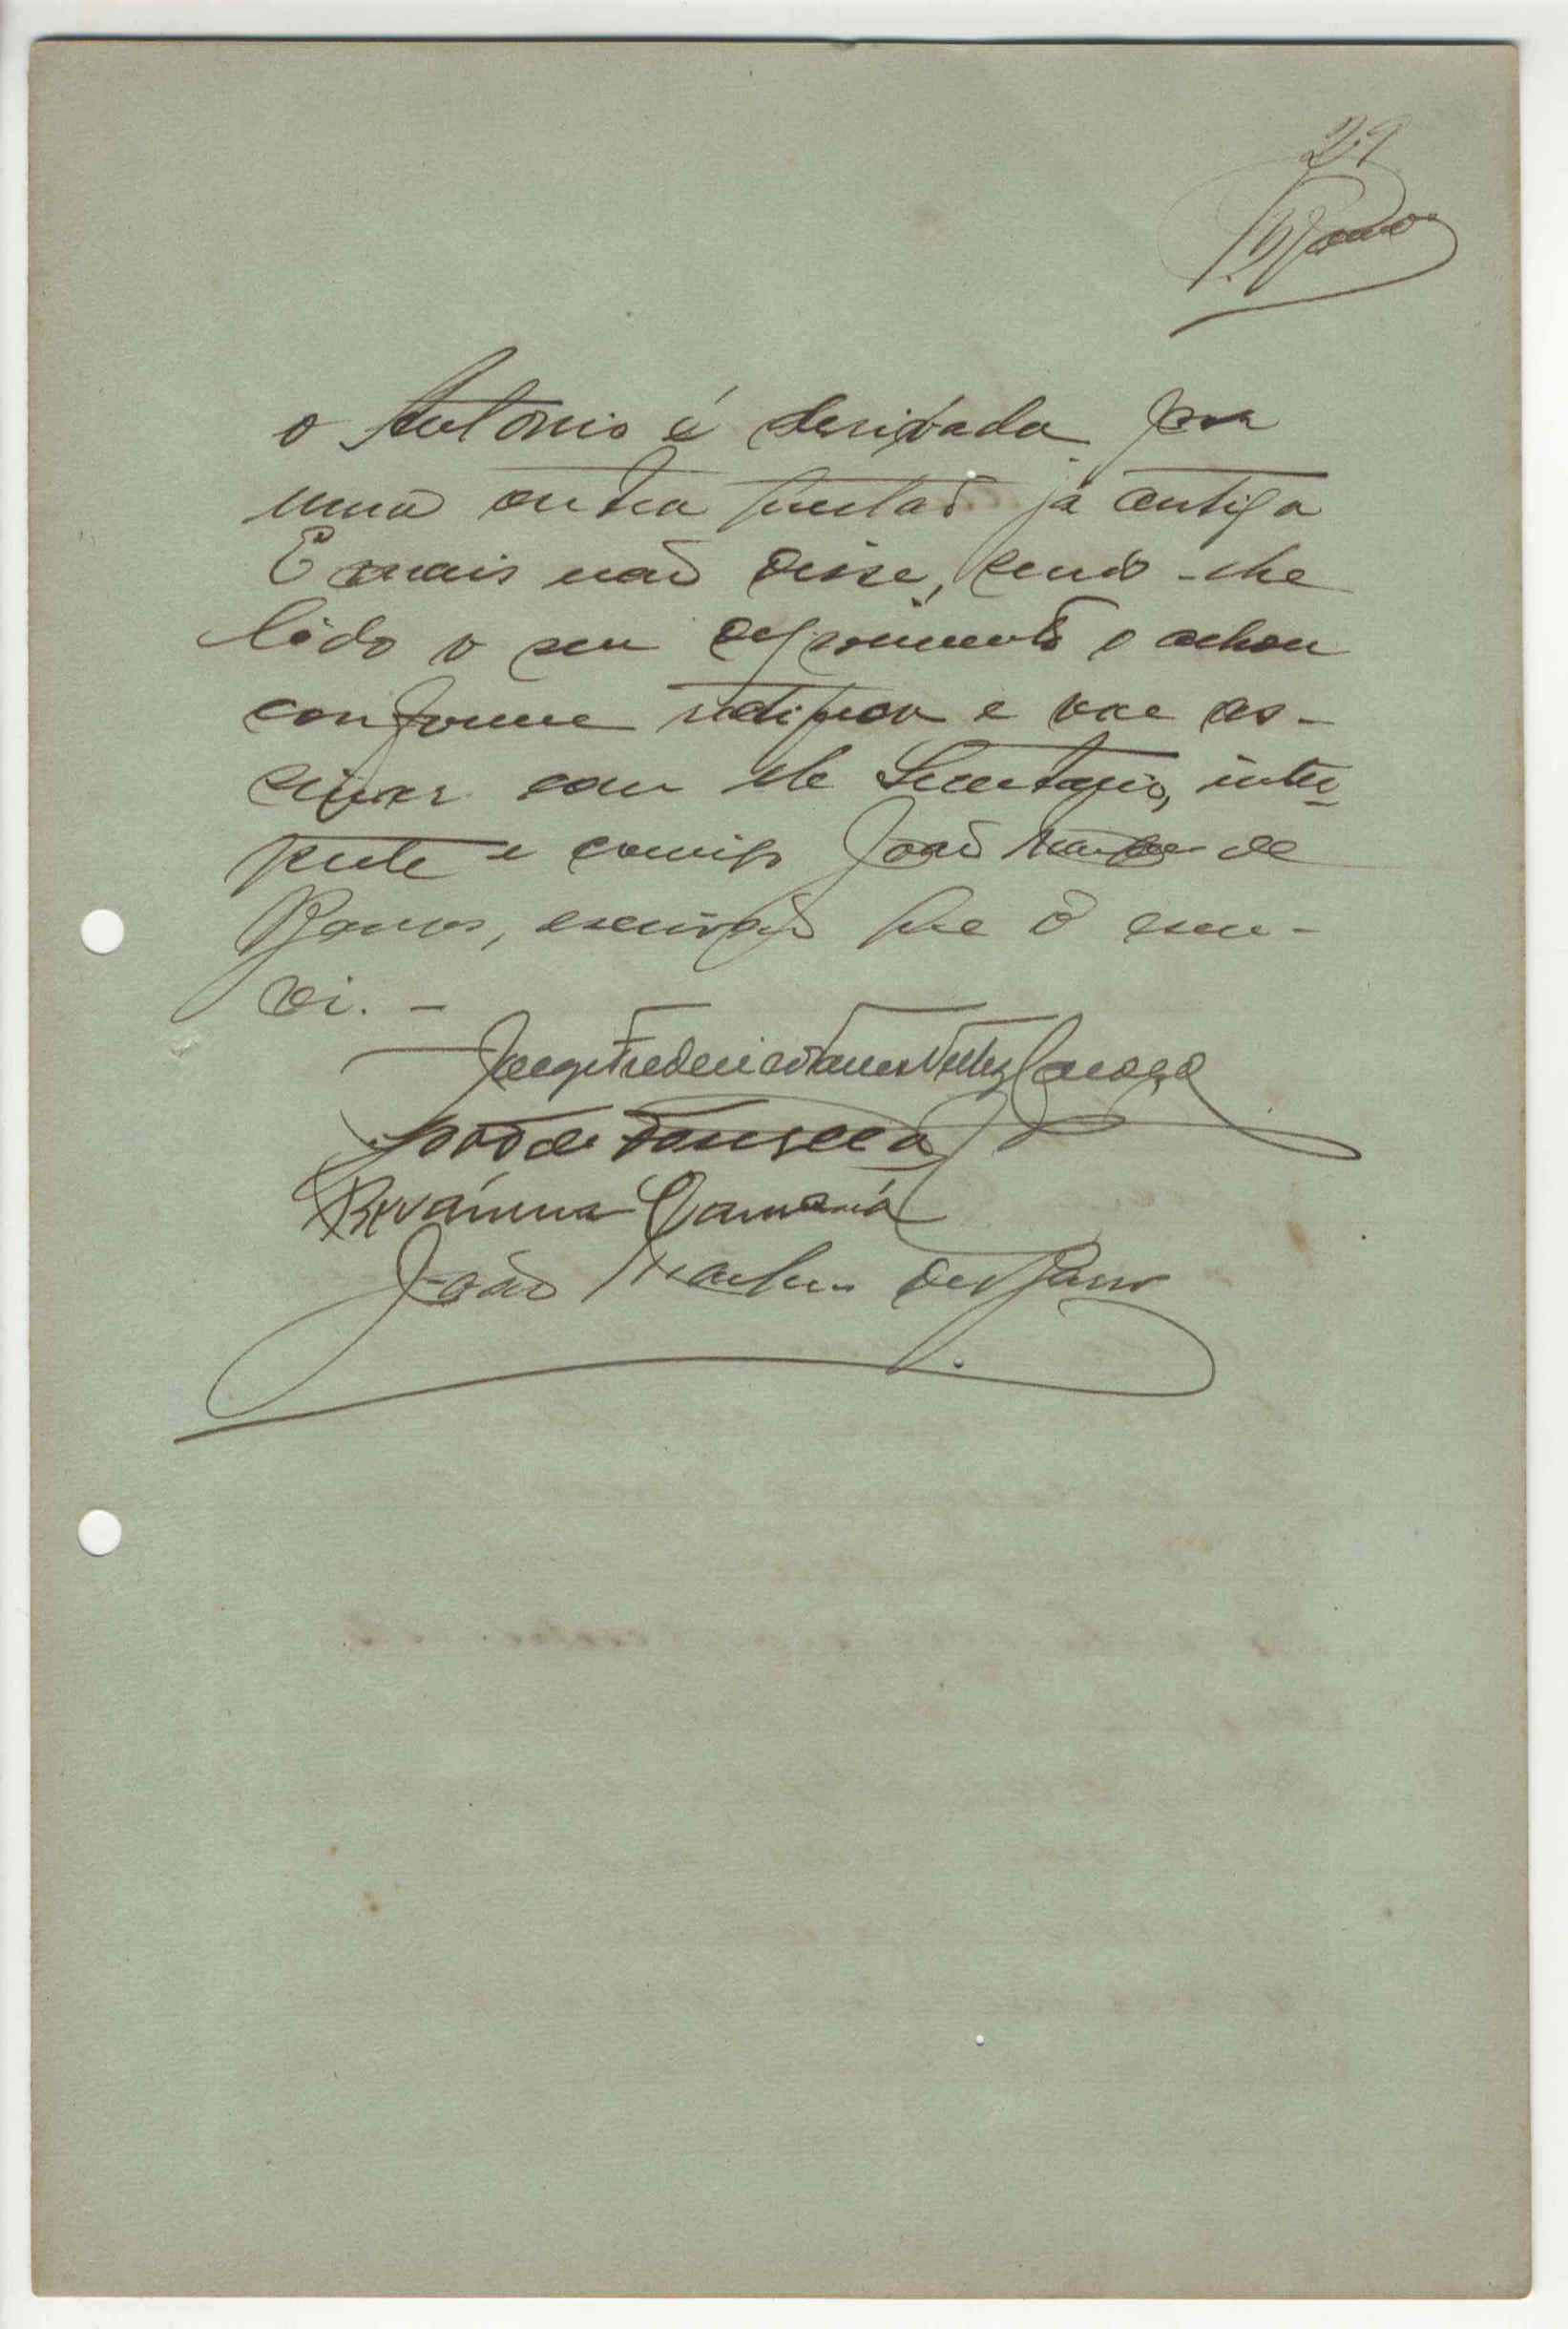 29
o Antonio é derivada por
uma outra questaõ já antiga
E mais naõ disse, sendo-lhe
lido o seu depoimento o achou
conforme ratificou e vae as-
sinar com ele Secretario, inter-
prete e comigo João de
Barros, escrivaõ que o escre-
vi. –
Jorge Frederico Torres Velez Caroço
João da Fonseca
Camará
João de Barros